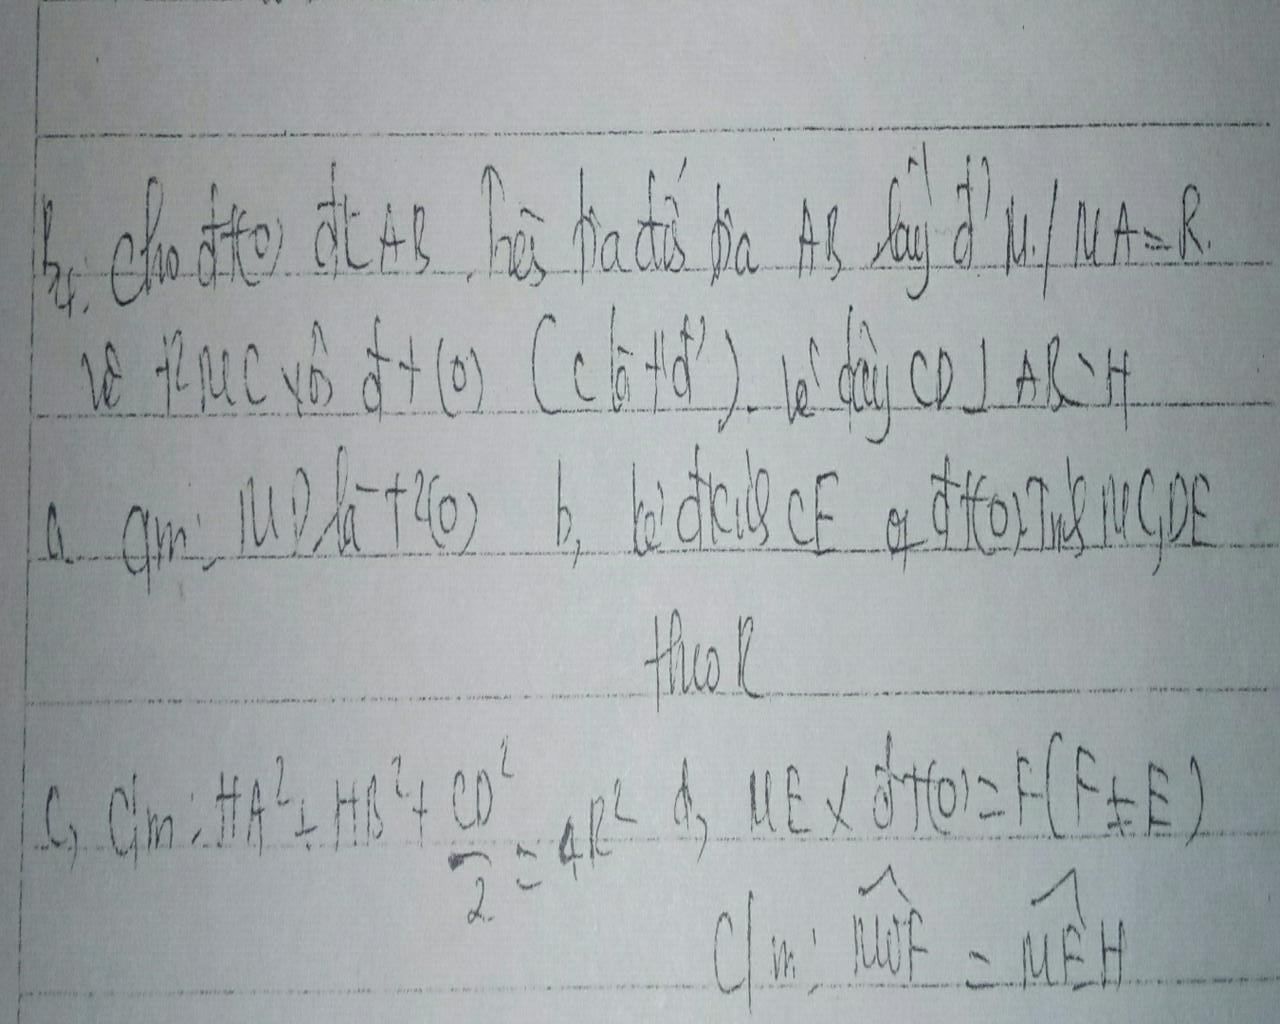 B4: Cho đt(O) đk AB. Trên tia đối tia AB lấy đ' M / MA = R.
Vẽ t² MC với đt (O) (C là tđ'). Vẽ dây CD ⊥ AB ` H
a. C/m: MD là t²(O) b, kẻ đkính CE of đt(O). Tính MC, DE
theo R
c, C/m: HA² + HB² + CD²/2 = 4R² d, ME x đt(O) = F (F ≠ E)
C/m: MOF = MEH